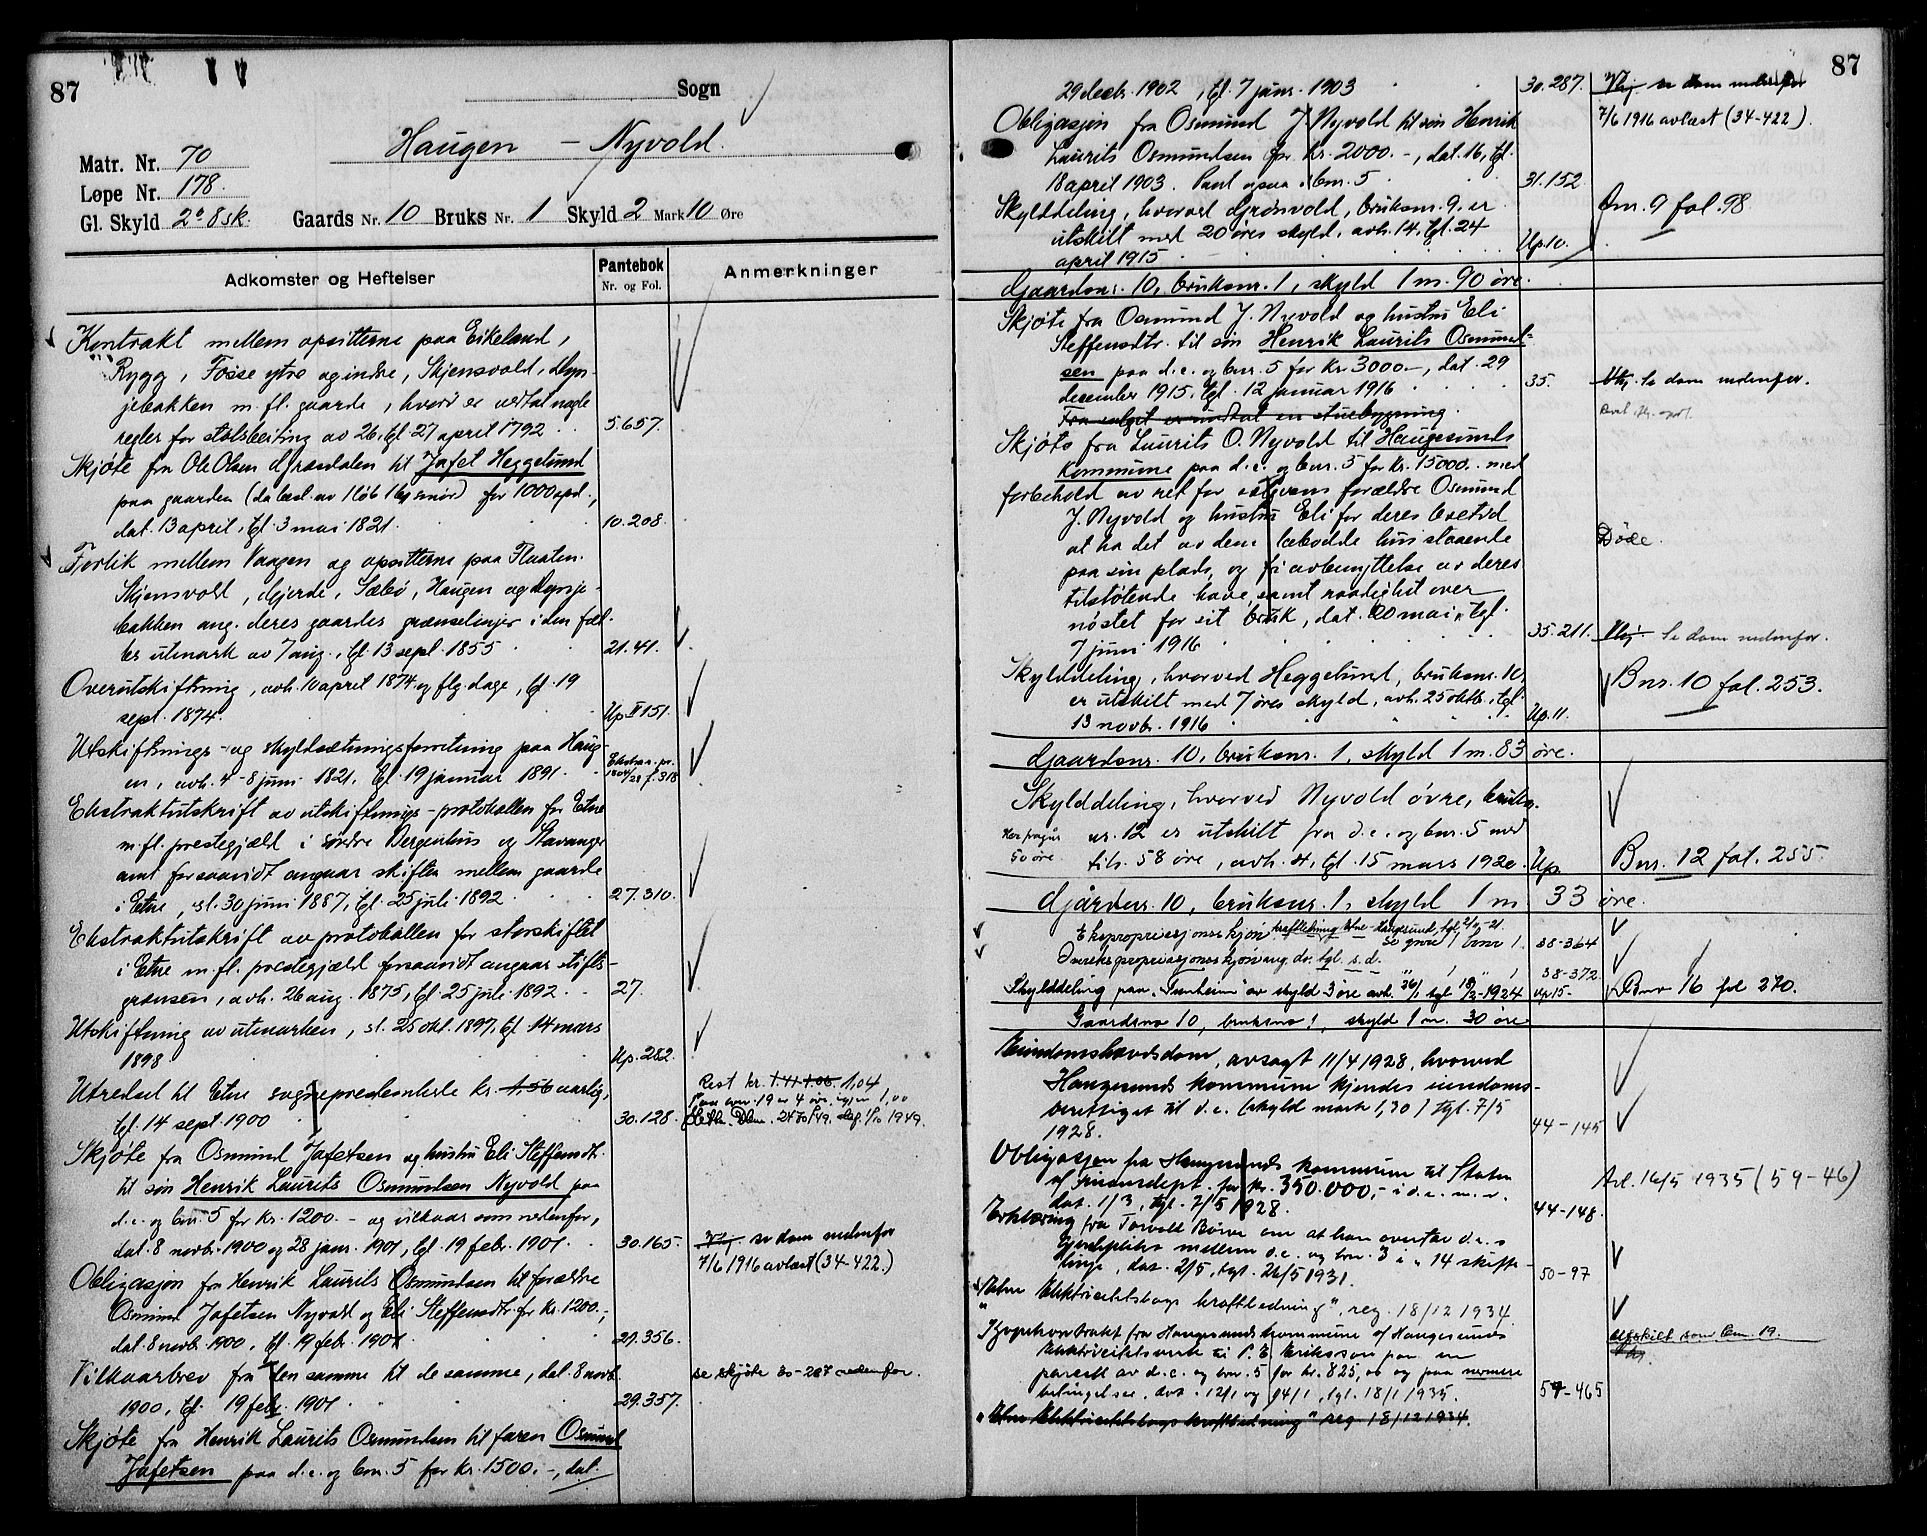 87
Sogn
Haugen - Nyvold.
Matr. Nr. 70
Løpe Nr. 178.
Gl. Skyld 2 8 sk. Gaards Nr. 10 Bruks Nr. 1 Skyld 2 Mark 10 Øre
Adkomster og Heftelser Pantebok Nr. og Fol. Anmerkninger
Kontrakt mellem opsitterne paa Eikeland,
Rygg, Fosse ytre og indre, Skjensvold, Dyn-
jebakken m. fl. gaarde, hvori er avtal nogle
regler for stølsbeiting av 26, tgl. 27 april 1792 5.657.
Skjøte fra Ole Olsen Grøsdalen til Jafet Heggelund
paa gaarden (da best. av 1 løb 1 bp smør) for 1000 spd.,
dat. 13 april, tgl. 3 mai 1821. 10.208.
Forlik mellem Vaagen og opsitterne paa Flaaten.
Skjensvold, Gjerde, Sæbø, Haugen og Dynje-
bakken ang. deres gaardes grænselinjer i den fæl-
les utmark av 7 aug., tgl. 13 sept. 1855 21.41.
Overutskiftning, avh. 10 april 1874 og flg. dage, tgl. 19
sept. 1874. Up. II 151.
Utskiftnings- og skyldsætningsforretning paa Haug-
en, avh. 4-8 juni 1821, tgl. 19 januar 1891. Ekstrar. pr. f. 318
Ekstraktutskrift av utskiftnings-protokollen for Etne
m. fl. prestegjæld i søndre Bergenhus og Stavanger
amt forsaavidt angaar skiftet mellem gaarde
i Etne, sl. 30 juni 1887, tgl. 25 juli 1892 27.310.
Ekstraktutskrift av protokollen for storskiftet
i Etne m. fl. prestegjæld forsaavidt angaar stifts-
grænsen, avh. 26 aug. 1875, tgl. 25 juli 1892. 27.
Utskiftning av utmarken, sl. 25 okt. 1897, tgl. 14 mars
1898 Up. 282.
Utredsel til Etne sogneprestembede kr. 1.56 aarlig, Rest kr. 1.11 1.08. 1,04
tgl. 14 sept. 1900 30.128. Paa bnr. 19 er 4 øre, igjen 1,00
Skjøte fra Osmund Jafetsen og hustru Eli Steffensdtr.
til søn Henrik Laurits Osmundsen Nyvold paa
d. e. og bnr. 5 for kr. 1200.- og vilkaar som nedenfor,
dat. 8 novbr. 1900 og 28 janr. 1901, tgl. 19 febr. 1901. 30.165. se dom nedenfor
7/6 1916 avlæst (34-422.)
Obligasjon fra Henrik Laurits Osmundsen til forældre
Osmund Jafetsen Nyvold og Eli Steffensdtr. for kr. 1200.-,
dat. 8 novbr. 1900, tgl. 19 febr. 1901 29.356.
Vilkaarbrev fra den samme til de samme, dat. 8 novb. se skjøte 30-287 nedenfor.
1900, tgl. 19 febr. 1901 29.357.
Skjøte fra Henrik Laurits Osmundsen til faren Osmund
Jafetsen paa d. e. og bnr. 5 for kr. 1500.-, dat.
87
29 decbr. 1902, tgl. 7 janr. 1903 30.287. se dom nedenfor
7/6 1916 avlæst (34-422).
Obligasjon fra Osmund J. Nyvold til søn Henrik
Laurits Osmundsen for kr. 2000.-, dat. 16, tgl.
18 april 1903. Pant ogsaa i bnr. 5 31.152
Skylddeling, hvorved Grønvold, bruksnr. 9. er Bnr. 9 fol. 98
utskilt med 20 øres skyld, avh. 14, tgl. 24
april 1915 Up. 10.
Gaardsnr. 10, bruksnr. 1, skyld 1 m. 90 øre.
Skjøte fra Osmund J. Nyvold og hustru Eli
Steffensdtr. til søn Henrik Laurits Osmund-
sen paa d. e. og bnr. 5 for kr. 3000.-, dat. 29
december 1915, tgl. 12 januar 1916 35. Se dom nedenfor.
Fra salget er undtat en stuebygning.
Skjøte fra Laurits O. Nyvold til Haugesunds
kommune paa d. e. og bnr. 5 for kr. 15000.- med
forbehold av ret for sælgerens forældre Osmund
J. Nyvold og hustru Eli for deres levetid
at ha det av dem bebodde hus staaende Døde.
paa sin plads, og fri avbenyttelse av deres
tilstøtende have, samt raadighet over
nøstet for sit bruk, dat. 20 mai, tgl.
7 juni 1916 35.211. Se dom nedenfor.
Skylddeling, hvorved Heggelund, bruksnr. 10, Bnr. 10 fol. 253.
er utskilt med 7 øres skyld, avh. 25 oktb., tgl.
13 novbr. 1916 Up. 11.
Gaardsnr. 10, bruksnr. 1, skyld 1 m. 83 øre.
Skylddeling, hvorved Nyvold øvre, bruks-
Her fragaar 50 øre nr. 12 er utskilt fra d. e. og bnr. 5 med
tils. 58 øre, avh. 4, tgl. 15 mars 1920. Up. Bnr. 12 fol. 255.
Gårdsnr. 10, bruksnr. 1, skyld 1 m 33 øre.
Ekspropriasjonsskjøn kraftledning Etne-Haugesund, tgl. 38-364
Overekspropriasjonsskjøn ang. do. tgl. s. d. 38-372
Skylddeling paa "Tunheim" av skyld 3 øre avh. 26/1 tgl. 18/2-1924 Up 15- Bnr 16 fol 270.
Gaardsnr 10, bruksnr 1, skyld 1 m. 30 øre
Eiendomshævdsdom, avsagt 11/4 1928, hvorved
Haugesunds kommune kjendes eiendoms-
berettiget til d. e. (skyld mark 1,30) tgl. 7/5
1928. 44-145
Obligasjon fra Haugesunds kommune til Staten
v/ Finansdept. for kr. 350.000,- i d. e. m. v. Avl. 16/5 1935 (59-46)
dat. 1/3, tgl. 7/5 1928. 44-148.
Erklæring fra Torvald Børve om at han overtar d. e. s
gjerdeplikt mellem d. e. og bnr. 3 i 14 skifte-
linje, dat. 2/5, tgl. 26/5 1931. 50-97
"Etne Elektricitetslags kraftledning", reg. 18/12 1934
Kjøpekontrakt fra Haugesunds kommune v/ Haugesunds utskilt som bnr. 19.
Elektricitetsverk til P. E. Eriksson paa en
parcell av d. e. og bnr. 5 for kr. 825,00 og paa nærmere
betingelser, dat. 12/1 og 14/1, tgl. 18/1 1935. 57-465
"Etne Elektricitetslags kraftledning" reg. 18/12 1934.